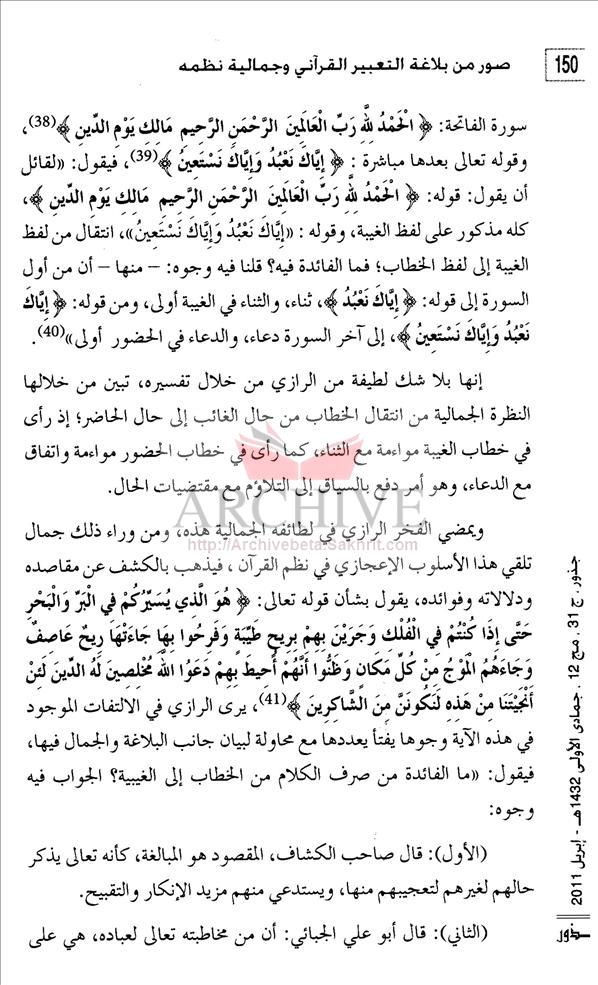 150
صور من بلاغة التعبير القرآني وجمالية نظمه
سورة الفاتحة: ﴿ الْحَمْدُ للَّهِ رَبِّ الْعَالَمِينَ الرَّحْمَنِ الرَّحِيمِ مَالِكِ يَوْمِ الدِّينِ ﴾(38)،
وقوله تعالى بعدها مباشرة : ﴿ إِيَّاكَ نَعْبُدُ وَإِيَّاكَ نَسْتَعِينُ ﴾(39)، فيقول: «لقائل
أن يقول: قوله: ﴿ الْحَمْدُ للَّهِ رَبِّ الْعَالَمِينَ الرَّحْمَنِ الرَّحِيمِ مَالِكِ يَوْمِ الدِّينِ ﴾،
كله مذكور على لفظ الغيبة، وقوله : «إِيَّاكَ نَعْبُدُ وَإِيَّاكَ نَسْتَعِينُ»، انتقال من لفظ
الغيبة إلى لفظ الخطاب؛ فما الفائدة فيه؟ قلنا فيه وجوه: – منها – أن من أول
السورة إلى قوله: ﴿ إِيَّاكَ نَعْبُدُ ﴾، ثناء، والثناء في الغيبة أولى، ومن قوله: ﴿ إِيَّاكَ
نَعْبُدُ وَإِيَّاكَ نَسْتَعِينُ ﴾، إلى آخر السورة دعاء، والدعاء في الحضور أولى»(40).
إنها بلا شك لطيفة من الرازي من خلال تفسيره، تبين من خلالها
النظرة الجمالية من انتقال الخطاب من حال الغائب إلى حال الحاضر؛ إذ رأى
في خطاب الغيبة مواءمة مع الثناء، كما رأى في خطاب الحضور مواءمة واتفاق
مع الدعاء، وهو أمر دفع بالسياق إلى التلاؤم مع مقتضيات الحال.
ARCHIVE
http://Archivebeta.Sakhrit.com
ويمضي الفخر الرازي في لطائفه الجمالية هذه، ومن وراء ذلك جمال
تلقي هذا الأسلوب الإعجازي في نظم القرآن ، فيذهب بالكشف عن مقاصده
ودلالاته وفوائده، يقول بشأن قوله تعالى: ﴿ هُوَ الَّذِي يُسَيِّرُكُمْ فِي الْبَرِّ وَالْبَحْرِ
حَتَّى إِذَا كُنْتُمْ فِي الْفُلْكِ وَجَرَيْنَ بِهِمْ بِرِيحٍ طَيِّبَةٍ وَفَرِحُوا بِهَا جَاءَتْهَا رِيحٌ عَاصِفٌ
وَجَاءَهُمُ الْمَوْجُ مِنْ كُلِّ مَكَانٍ وَظَنُّوا أَنَّهُمْ أُحِيطَ بِهِمْ دَعَوُا اللَّهَ مُخْلِصِينَ لَهُ الدِّينَ لَئِنْ
أَنْجَيْتَنَا مِنْ هَذِهِ لَنَكُونَنَّ مِنَ الشَّاكِرِينَ ﴾(41)، يرى الرازي في الالتفات الموجود
في هذه الآية وجوها يفتأ يعددها مع محاولة لبيان جانب البلاغة والجمال فيها،
فيقول: «ما الفائدة من صرف الكلام من الخطاب إلى الغيبية؟ الجواب فيه
وجوه:
(الأول): قال صاحب الكشاف، المقصود هو المبالغة، كأنه تعالى يذكر
حالهم لغيرهم لتعجيبهم منها، ويستدعي منهم مزيد الإنكار والتقبيح.
(الثاني): قال أبو علي الجبائي: أن من مخاطبته تعالى لعباده، هي على
جذور ، ج 31 ، مج 12 ، جمادى الأولى 1432هـ - إبريل 2011
جذور